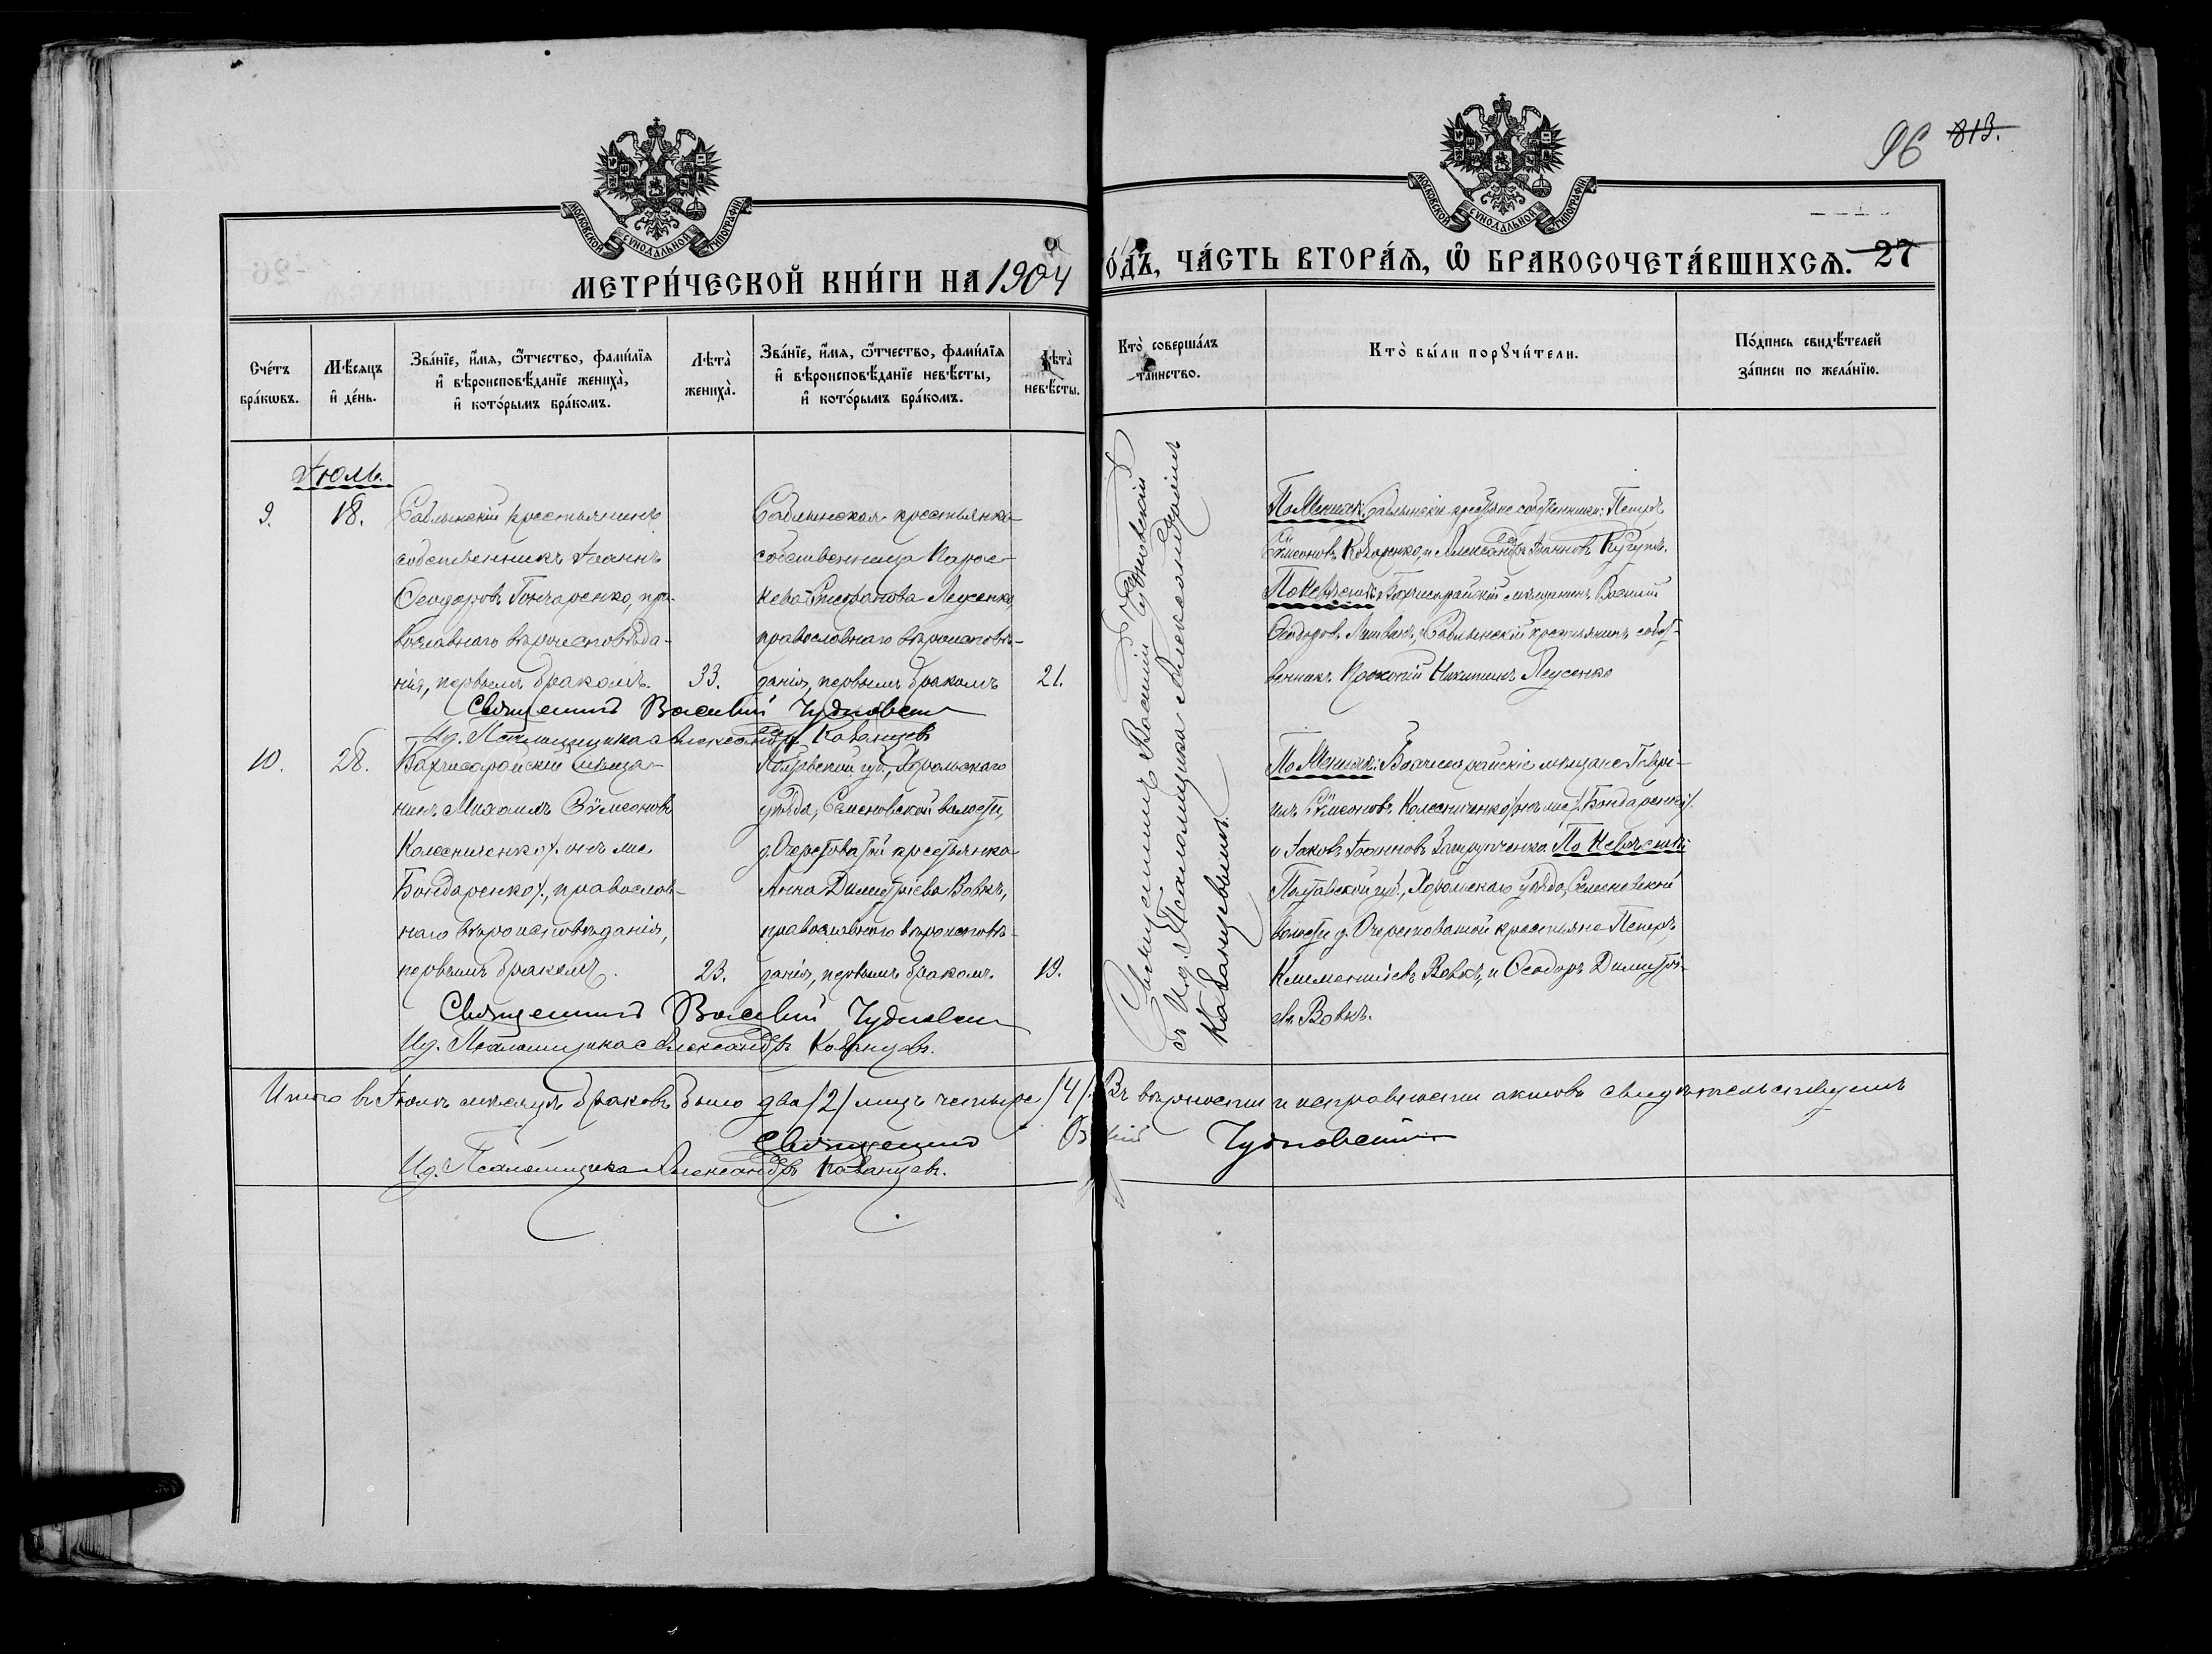 96 813.
МОСКОВСКОЙ СѴНОДАЛЬНОЙ ТИПОГРАФІИ
МОСКОВСКОЙ СѴНОДАЛЬНОЙ ТИПОГРАФІИ
МЕТРИ́ЧЕСКОЙ КНИ́ГИ НА 1904 ГО́ДЪ, ЧА́СТЬ ВТОРА́Я, Ѡ҆ БРАКОСОЧЕТА́ВШИХСЯ. 27
Сче́тъ бра́кѡвъ.
Мѣ́сяцъ и҆ де́нь.
Зва́нїе, и҆́мя, ѻ҆́тчество, фами́лїя и҆ вѣроисповѣ́данїе жениха̀, и҆ кото́рымъ бра́комъ.
Лѣта̀ жениха̀.
Зва́нїе, и҆́мя, ѻ҆́тчество, фами́лїя и҆ вѣроисповѣ́данїе невѣ́сты, и҆ кото́рымъ бра́комъ.
Лѣта̀ невѣ́сты.
Кто̀ соверша́лъ та́инство.
Кто̀ бы́ли порꙋчи́тели.
По́дпись свидѣ́телей за́писи по жела́нїю.
Іюль.
9.
18.
Саблынскій крестьянинъ
собственникъ Іоаннъ
Ѳеодоровъ Гончаренко, пра-
вославнаго вѣроисповѣда-
нія, первымъ бракомъ.
33.
Саблынская крестьянка
собственница Парас-
кева Стефанова Леусенко,
православнаго вѣроисповѣ-
данія, первымъ бракомъ
21.
Священникъ Василій Чудновскій
И.д. Псаломщика Александръ Кованцевъ
Священникъ Василій Ѳеод. Чудновскій
съ И.д. Псаломщика Александромъ
Кованцевымъ.
По Женихѣ: Саблынскіе крестьяне собственники: Петръ
Сѵмеоновъ Коваренко, и Александръ Іоанновъ
По Невѣстѣ: Бахчисарайскій мѣщанинъ Василій
Ѳеодоровъ Литвинъ, Саблынскій крестьянинъ собст-
венникъ Прокопій Никитинъ Леусенко
10.
28.
Бахчисарайскій мѣща-
нинъ Михаилъ Сѵмеоновъ
Колесниченко/. онъ же
Бондаренко/., православ-
наго вѣроисповѣданія,
первымъ бракомъ.
23.
Полтавской губ., Хорольскаго
уѣзда, Семеновской волости,
д. Очеретоватой крестьянка
Анна Димитріева Вовкъ,
православнаго вѣроисповѣ-
данія, первымъ бракомъ.
19.
По Женихѣ: Бахчисарайскіе мѣщане Гаврі-
илъ Сѵмеоновъ Колесниченко/. онъ же /. Бондаренко/.
и Іаковъ Іоанновъ По Невѣстѣ:
Полтавской губ., Хорольскаго уѣзда, Семеновской
волости д. Очеретоватой крестьяне Петръ
Климентіевъ Вовкъ, и Ѳеодоръ Димитрі-
евъ Вовкъ.
Священникъ Василій Чудновскій
И.д. Псаломщика Александръ Кованцевъ.
Итого въ Іюлѣ мѣсяцѣ браковъ было два /2/ лицъ четыре /4/. Въ вѣрности и исправности актовъ свидѣтельствуемъ
Священникъ Василій Чудновскій
И.д. Псаломщика Александръ Кованцевъ.